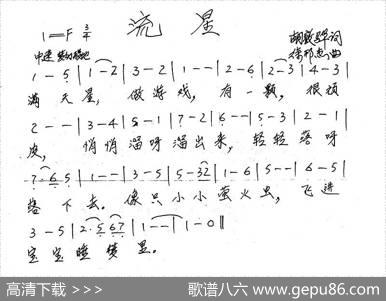 流星
1=F 3/4
词
曲
中速
1 — 5 | 1 — 2 | 3 — 2 | 1 — — | 2 — 6 | 2 — 3 | 4 — 3 |
满天星，做游戏，有一颗，很顽
2 — — | 3 — 4 | 5 — 1 | 7 — 2 | 6 — — | 5 — 3 | 2 — 1 |
皮，悄悄溜呀溜出来，轻轻落呀
7 · 6 5 | 1 — — | 3 — 5 | 5 — 32 | 1 — 6 | 5 — — | 6 — 5 |
落下去。像只小小萤火虫，飞进
3 — 5 | 2 · 5 67 | 1 — — | 1 — 0 ‖
宝宝睡
高清下载 >>>
歌谱八六 www.gepu86.com